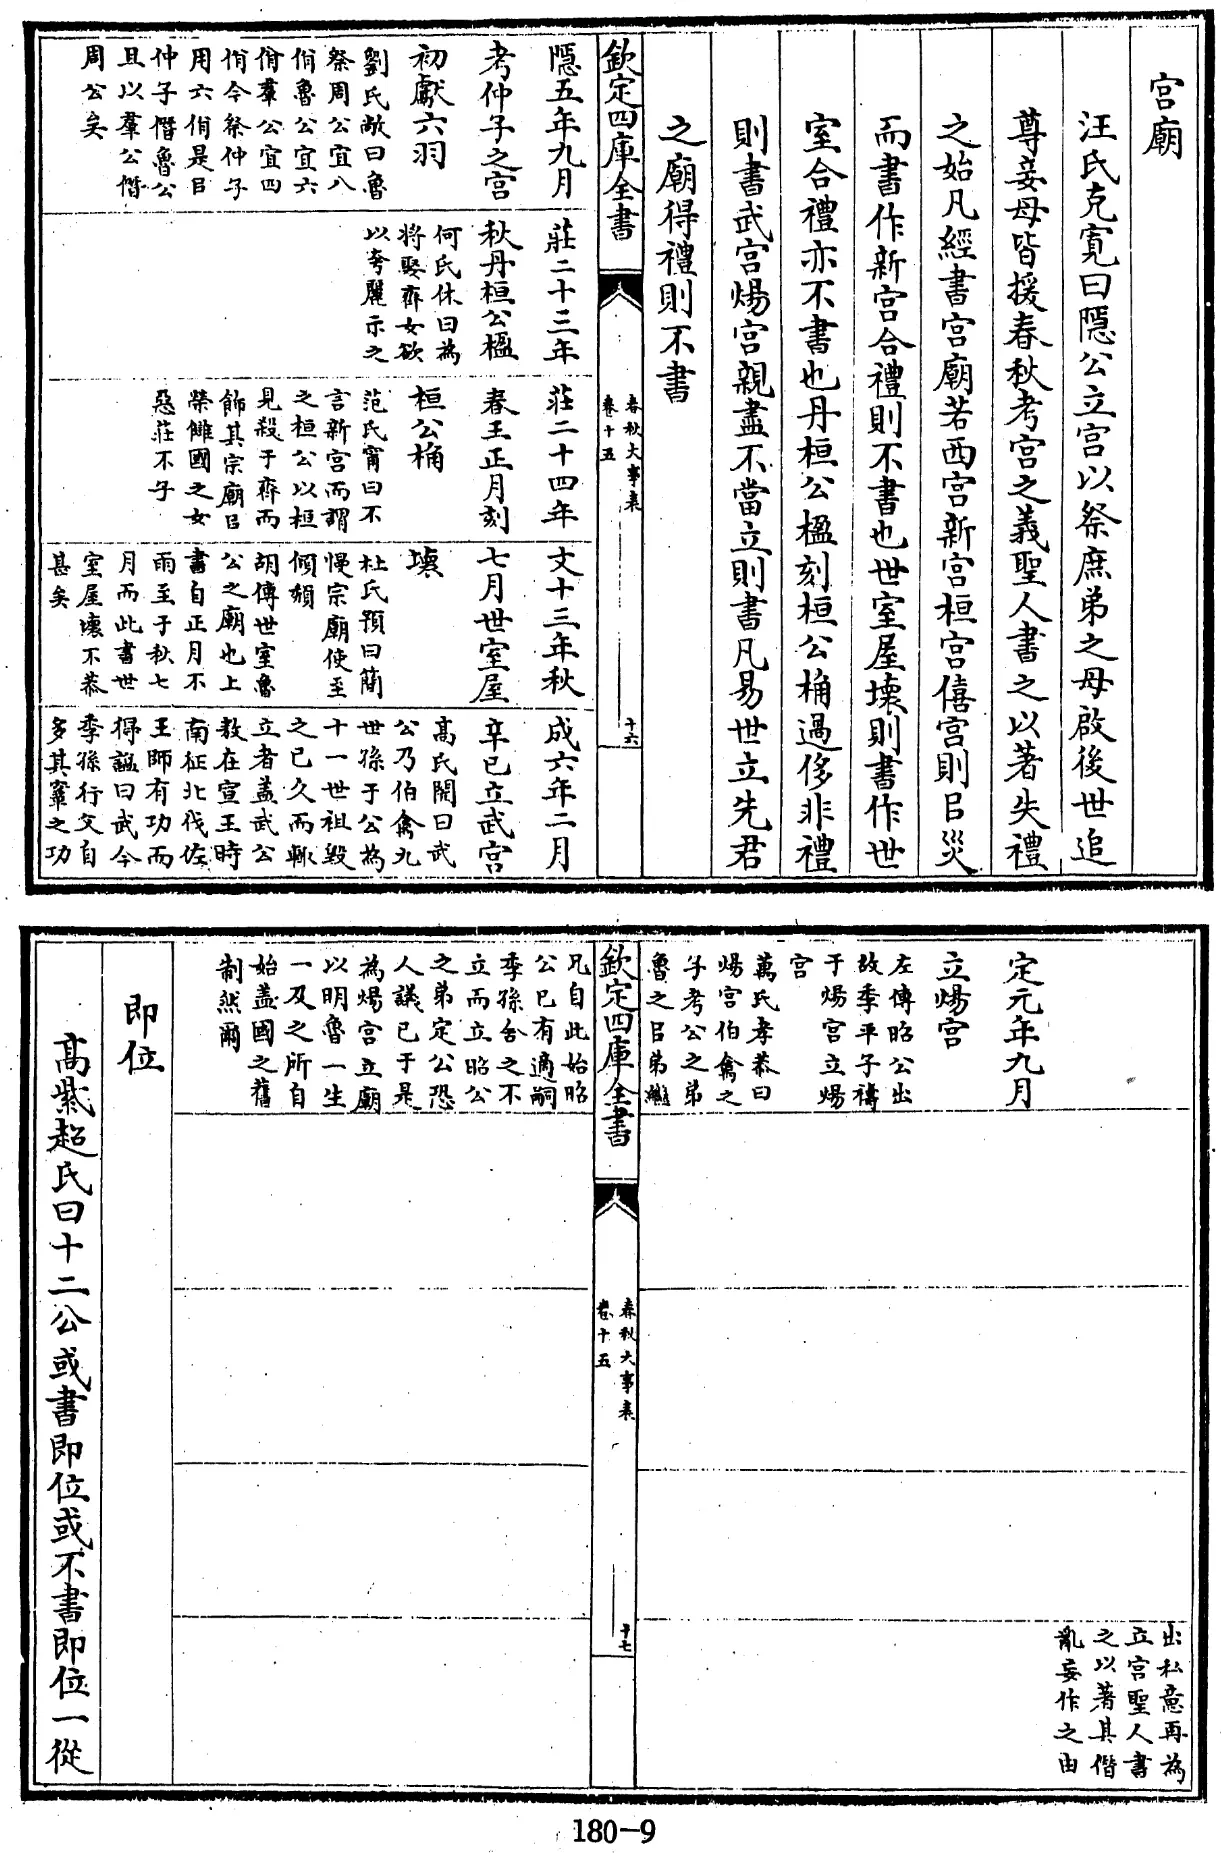 宫廟
汪氏克寛曰隱公立宫以祭庶弟之母啟後世追
尊妾母皆援春秋考宫之義聖人書之以著失禮
之始凡經書宫廟若西宫新宫桓宫僖宫則㠯災
而書作新宫合禮則不書也世室屋壊則書作世
室合禮亦不書也丹桓公楹刻桓公桷過侈非禮
則書武宫煬宫親盡不當立則書凡易世立先君
之廟得禮則不書
欽定四庫全書
春秋大事表
卷十五
十六
隱五年九月
考仲子之宫
初獻六羽
劉氏敞曰魯
祭周公宜八
佾魯公宜六
佾羣公宜四
佾今祭仲子
用六佾是㠯
仲子僭魯公
且以羣公僭
周公矣
莊二十三年
秋丹桓公楹
何氏休曰為
將娶齊女欲
以夸麗示之
莊二十四年
春王正月刻
桓公桷
范氏甯曰不
言新宫而謂
之桓公以桓
見殺于齊而
飾其宗廟㠯
榮讎國之女
惡莊不子
文十三年秋
七月世室屋
壊
杜氏預曰簡
慢宗廟使至
傾頽
胡傳世室魯
公之廟也上
書自正月不
雨至于秋七
月而此書世
室屋壊不恭
甚矣
成六年二月
辛巳立武宫
高氏閌曰武
公乃伯禽九
世孫于公為
十一世祖毁
之已久而輙
立者盖武公
敖在宣王時
南征北伐佐
王師有功而
得諡曰武今
季孫行父自
多其鞌之功
出私意再為
立宫聖人書
之以著其僭
亂妄作之由
定元年九月
立煬宫
左傳昭公出
故季平子禱
于煬宫立煬
宫
萬氏孝恭曰
煬宫伯禽之
子考公之弟
魯之㠯弟繼
欽定四庫全書
春秋大事表
卷十五
十七
兄自此始昭
公已有適嗣
季孫舍之不
立而立昭公
之弟定公恐
人議已于是
為煬宫立廟
以明魯一生
一及之所自
始盖國之舊
制然爾
即位
高紫超氏曰十二公或書即位或不書即位一從
180-9